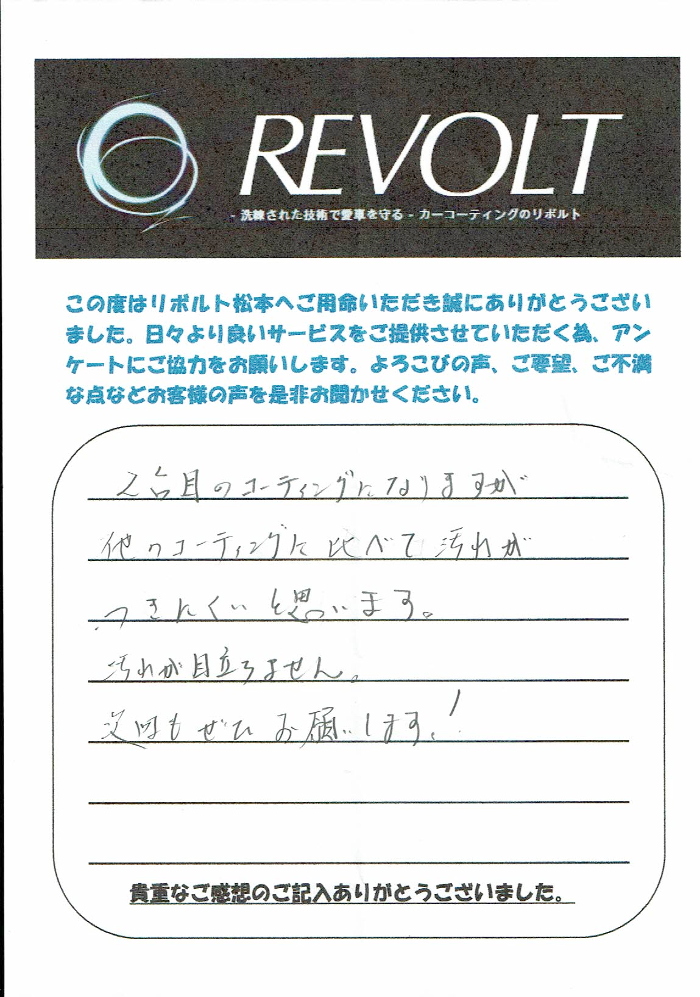 REVOLT
- 洗練された技術で愛車を守る - カーコーティングのリボルト
この度はリボルト松本へご用命いただき誠にありがとうござい
ました。日々より良いサービスをご提供させていただく為、アン
ケートにご協力をお願いします。よろこびの声、ご要望、ご不満
な点などお客様の声を是非お聞かせください。
2台目のコーティングになりますが
他のコーティングに比べて汚れが
つきにくいと思います。
汚れが目立ちません。
次回もぜひお願いします!
貴重なご感想のご記入ありがとうございました。